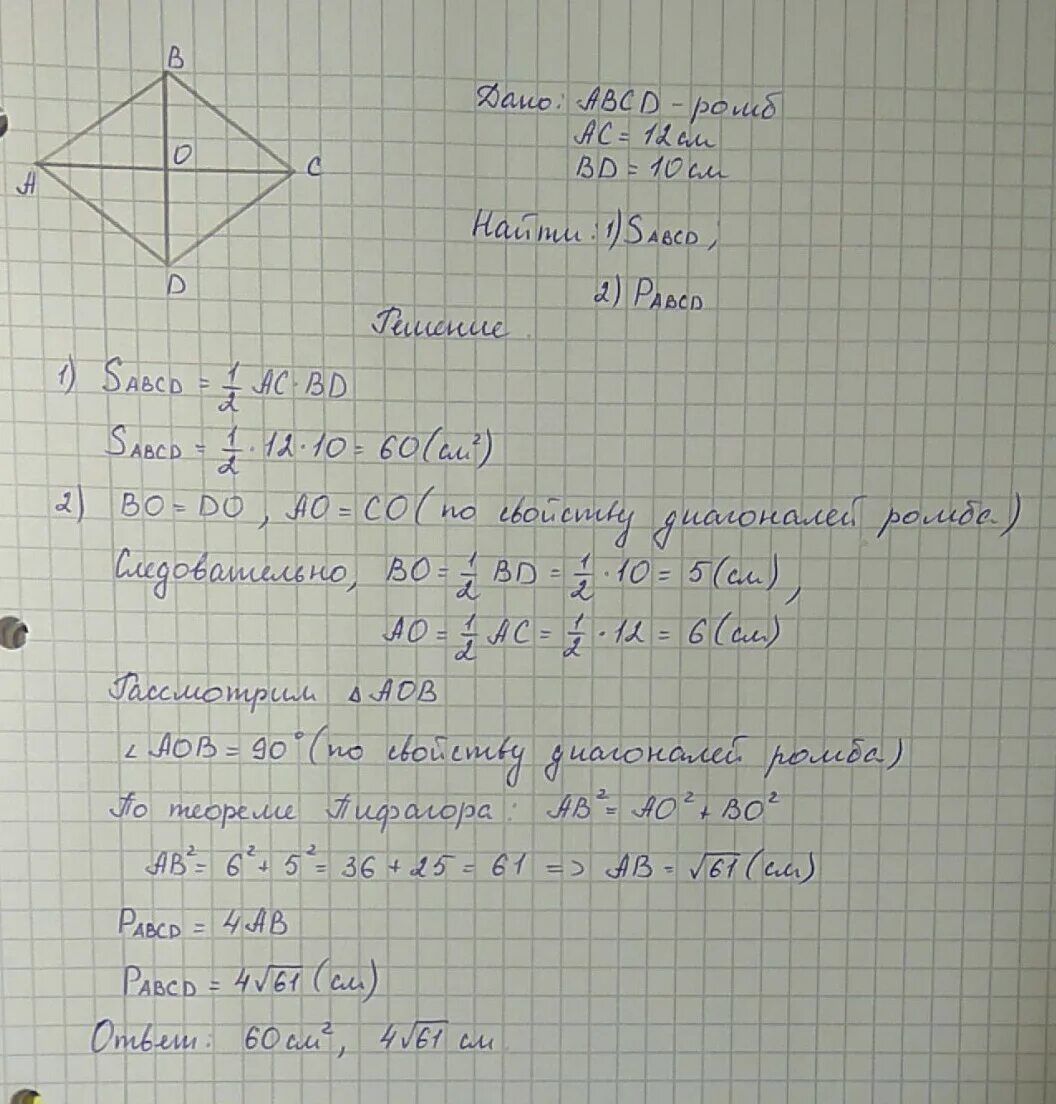 B
O
A
C
D
Дано: ABCD - ромб
AC = 12 см
BD = 10 см
Найти: 1) S_ABCD;
2) P_ABCD
Решение.
1) S_ABCD = 1/2 AC · BD
S_ABCD = 1/2 · 12 · 10 = 60 (см²)
2) BO = DO, AO = CO (по свойству диагоналей ромба)
Следовательно, BO = 1/2 BD = 1/2 · 10 = 5 (см),
AO = 1/2 AC = 1/2 · 12 = 6 (см)
Рассмотрим △AOB
∠AOB = 90° (по свойству диагоналей ромба)
По теореме Пифагора: AB² = AO² + BO²
AB² = 6² + 5² = 36 + 25 = 61 => AB = √61 (см)
P_ABCD = 4AB
P_ABCD = 4√61 (см)
Ответ: 60 см², 4√61 см